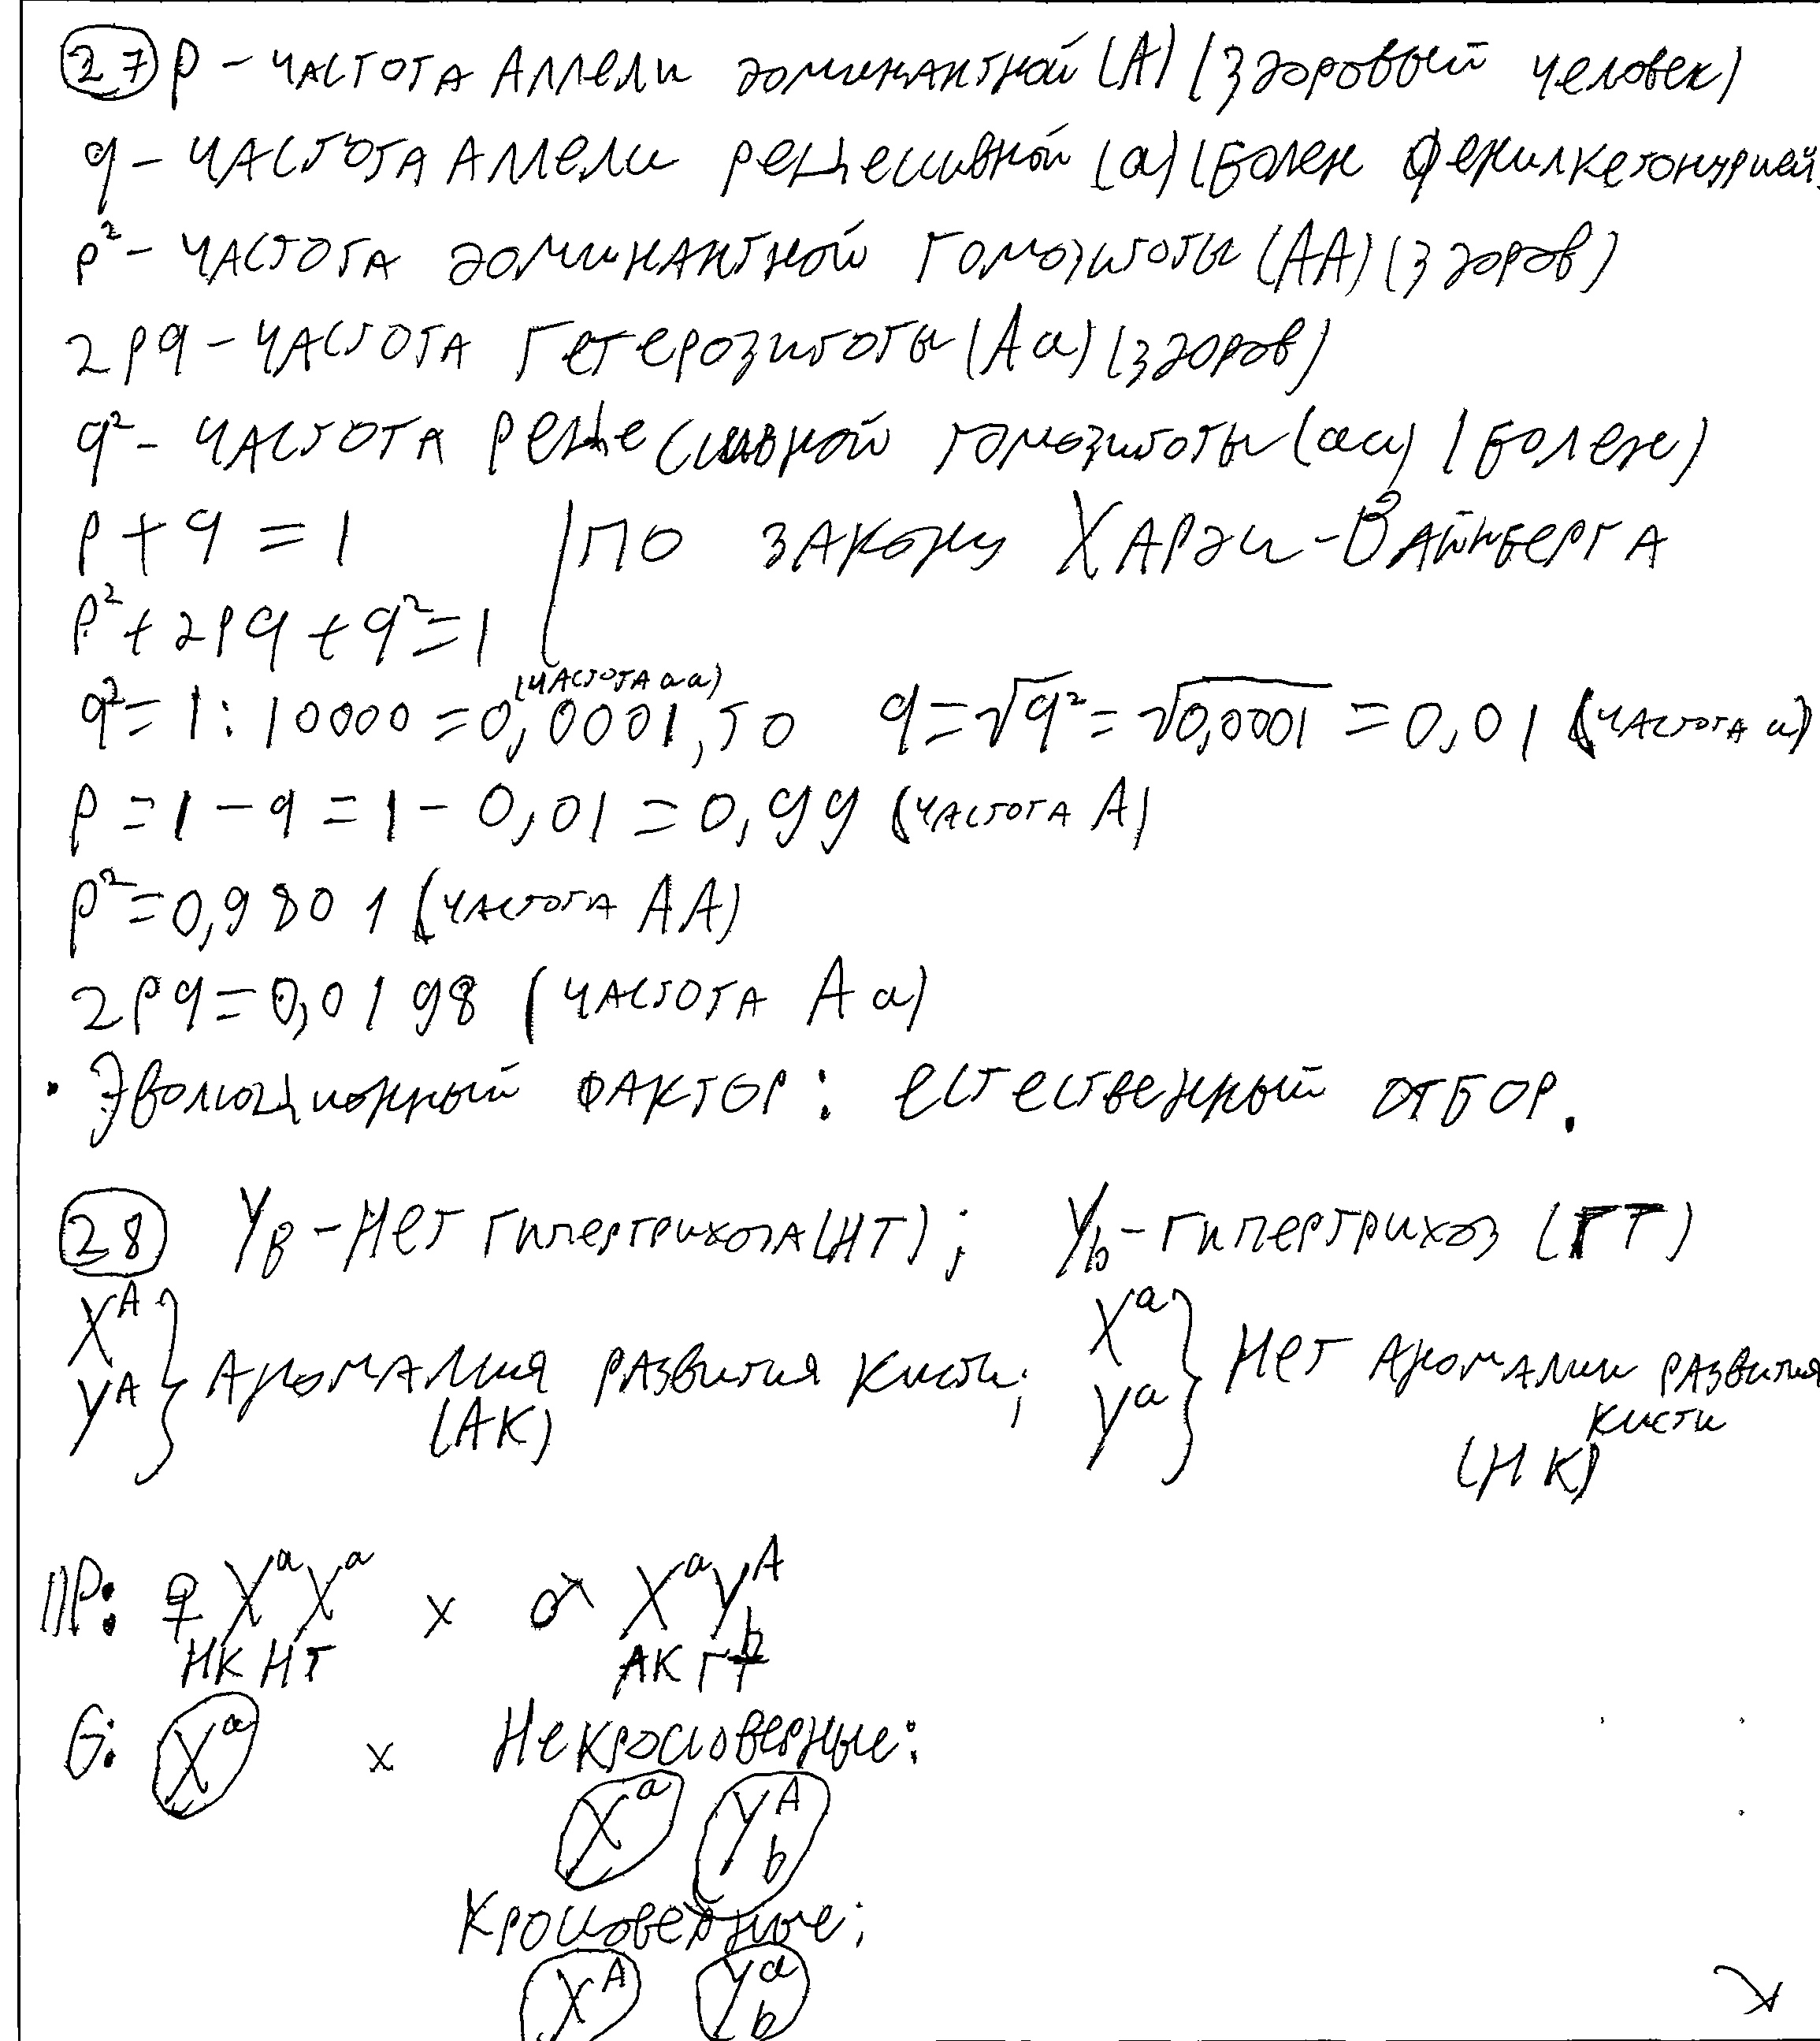 27 p - частота аллели доминантной (А) (здоровый человек)
q - частота аллели рецессивной (а) (болен фенилкетонурией)
p² - частота доминантной гомозиготы (АА) (здоров)
2pq - частота гетерозиготы (Аа) (здоров)
q² - частота рецессивной гомозиготы (аа) (болен)
p + q = 1 | по закону Харди-Вайнберга
p² + 2pq + q² = 1
(частота аа)
q² = 1 : 10000 = 0,0001, то q = √q² = √0,0001 = 0,01 (частота а)
p = 1 - q = 1 - 0,01 = 0,99 (частота А)
p² = 0,9801 (частота АА)
2pq = 0,0198 (частота Аа)
· Эволюционный фактор: естественный отбор.
28 Y_B - нет гипертрихоза (НТ); Y_b - гипертрихоз (ГТ)
X^A Y^A } аномалия развития кисти; X^a Y^a } нет аномалии развития
кисти
(АК) (НК)
P: ♀ X^a X^a x ♂ X^a Y^A_b
НК НТ АК ГТ
G: X^a x Некроссоверные:
X^a Y^A_b
Кроссоверные:
X^A Y^a_b